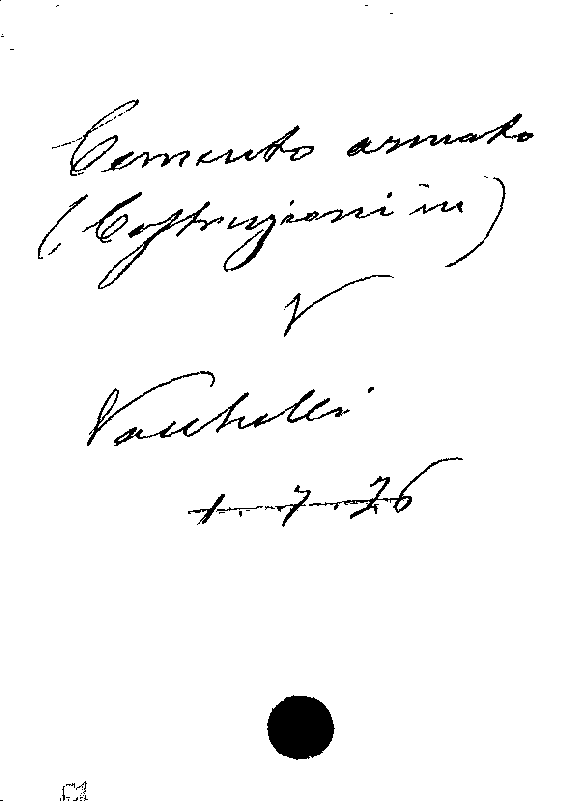 Cemento armato
(Costruzioni in)
V
Vacchelli
1. 7. 26